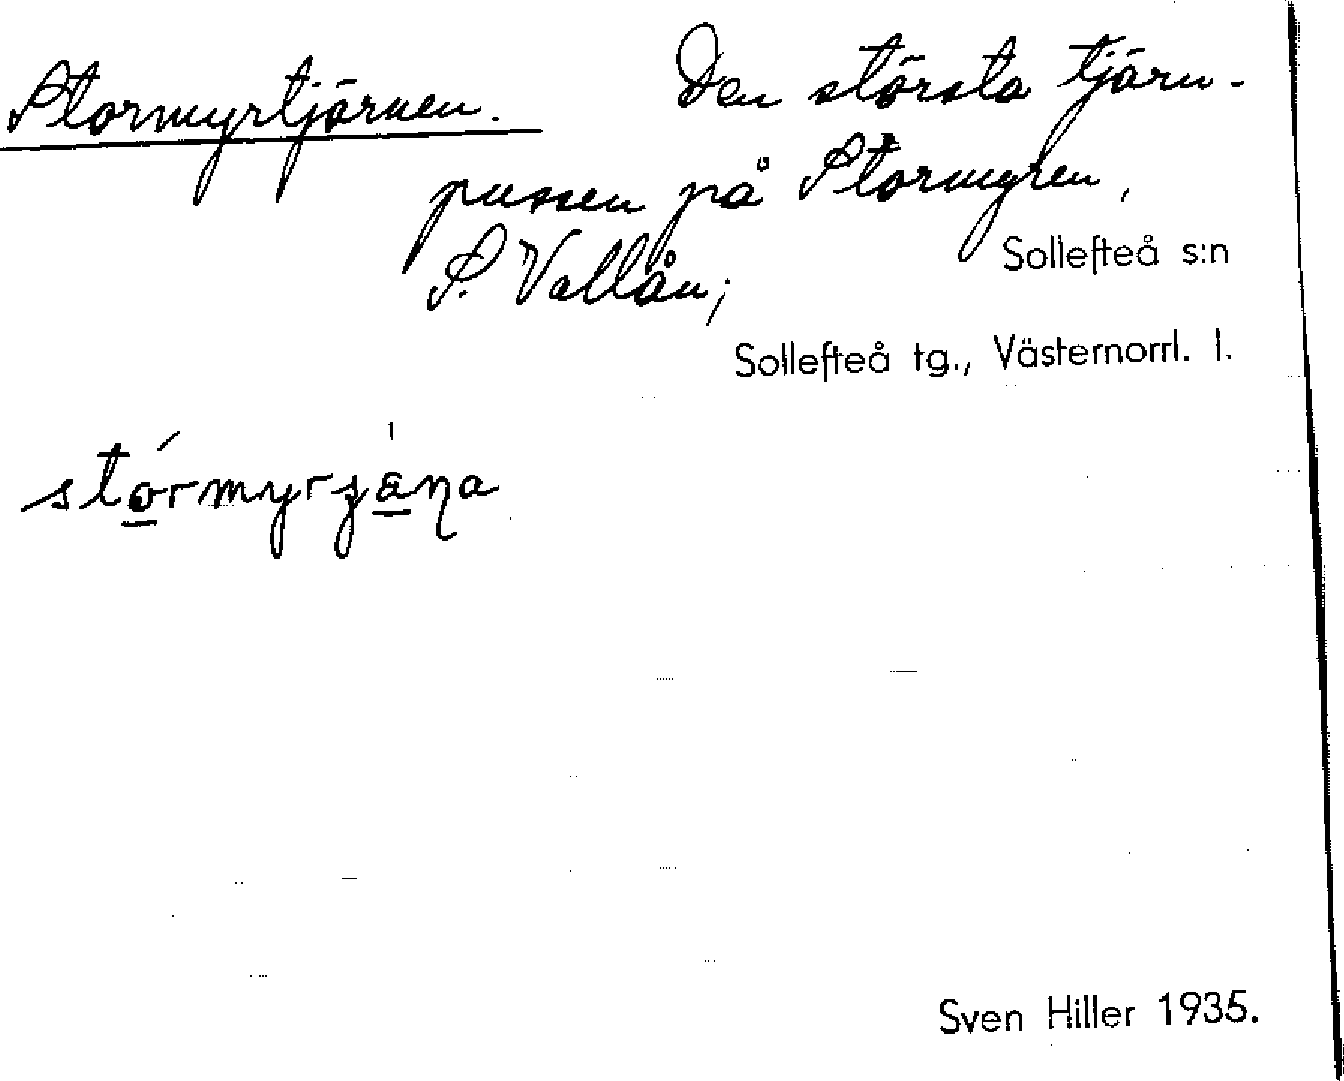 Stormyrtjärnen. Den största tjärn-
pussen på Stormyren,
S. Vallån; Sollefteå s:n
Sollefteå tg., Västernorrl. l.
Sven Hiller 1935.